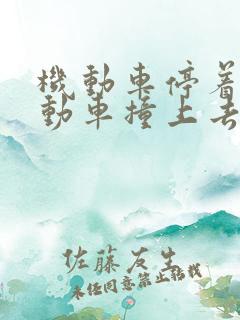 機動車停着
動車撞上去
佐藤友生
未经同意禁止转载